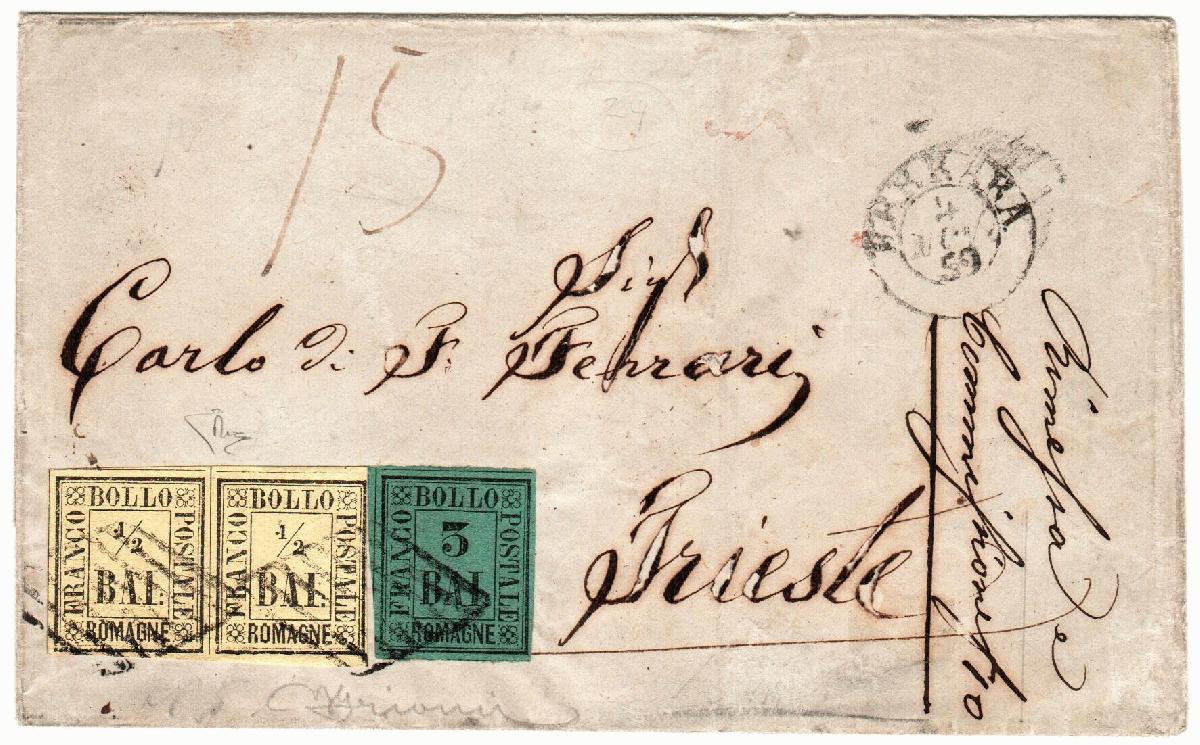 15
24
FERRARA
59
Sigr
Carlo di F. Ferrari
Trieste
BOLLO
FRANCO
POSTALE
1/2
BAI.
ROMAGNE
BOLLO
FRANCO
POSTALE
1/2
BAI.
ROMAGNE
BOLLO
FRANCO
POSTALE
3
BAI.
ROMAGNE